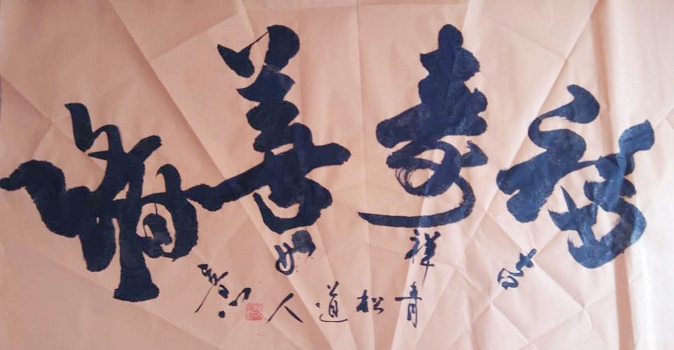 福寿善
吉祥如意
青松道人